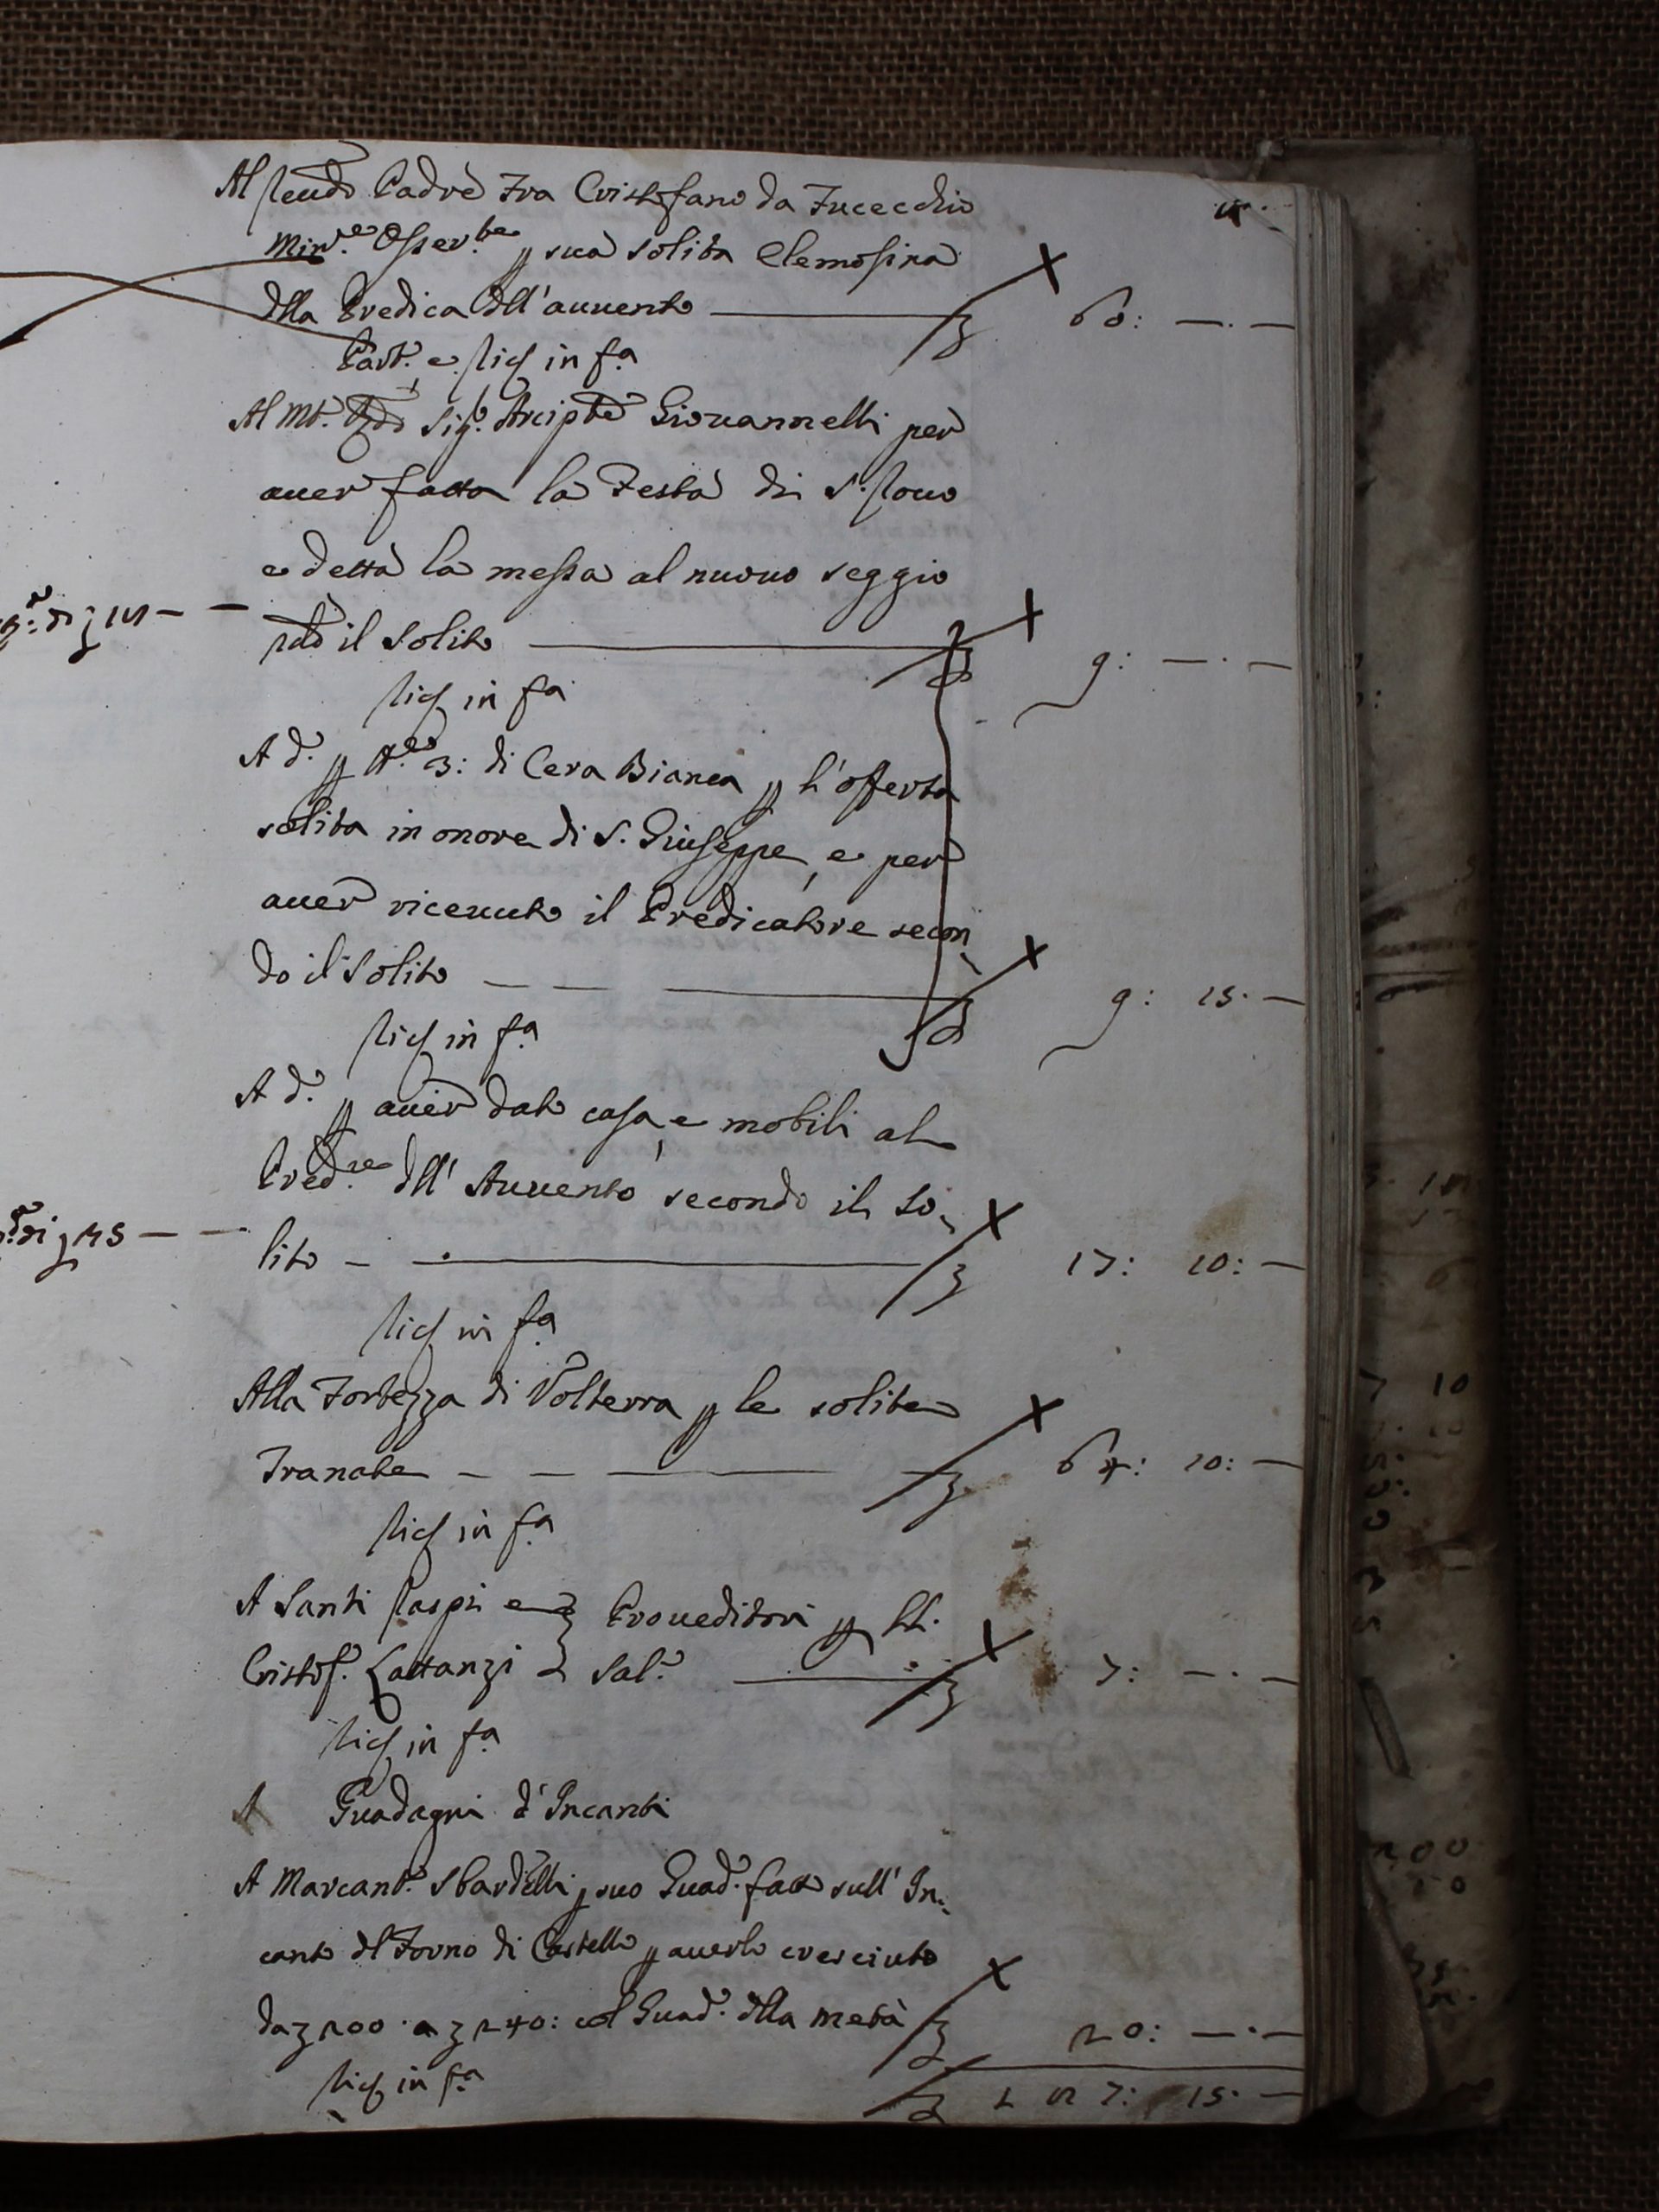 Al Rendo Padre Fra Cristofano da Fucecchio
Min.re Osser.te p sua solita Elemosina
dlla Predica dll'auuento — 60: —.—
Part. e liq in fa
Al Mto. Rdo Sig.r Arcipte Giouannelli per
auer fatta la Festa di S. Rocco
e detta la messa al nuouo seggio
il solito — 9: —.—
liq in fa
A d.o p 3: di Cera Bianca p l'offerta
solita in onore di S. Giuseppe, e per
auer riceuuto il Predicatore secon
do il solito — 9: 15.—
liq in fa
A d.o p auer dato casa, e mobili al
Pred.re dll'Auuento secondo il so
lito — 17: 10:—
liq in fa
Alla Fortezza di Volterra p le solite
Granate — 64: 10:—
liq in fa
A Santi Raspi e Proueditori p
Cristof.o Lattanzi Sal.o — 7: —.—
liq in fa
A Guadagni d'Incanti
A Marcant.o Sbardelli p suo Guad.o fatto sull'In
canto dl Forno di Castello p auerlo cresciuto
da 200 a 240: col Guad.o dlla metà 20: —.—
liq in fa 7: 15.—